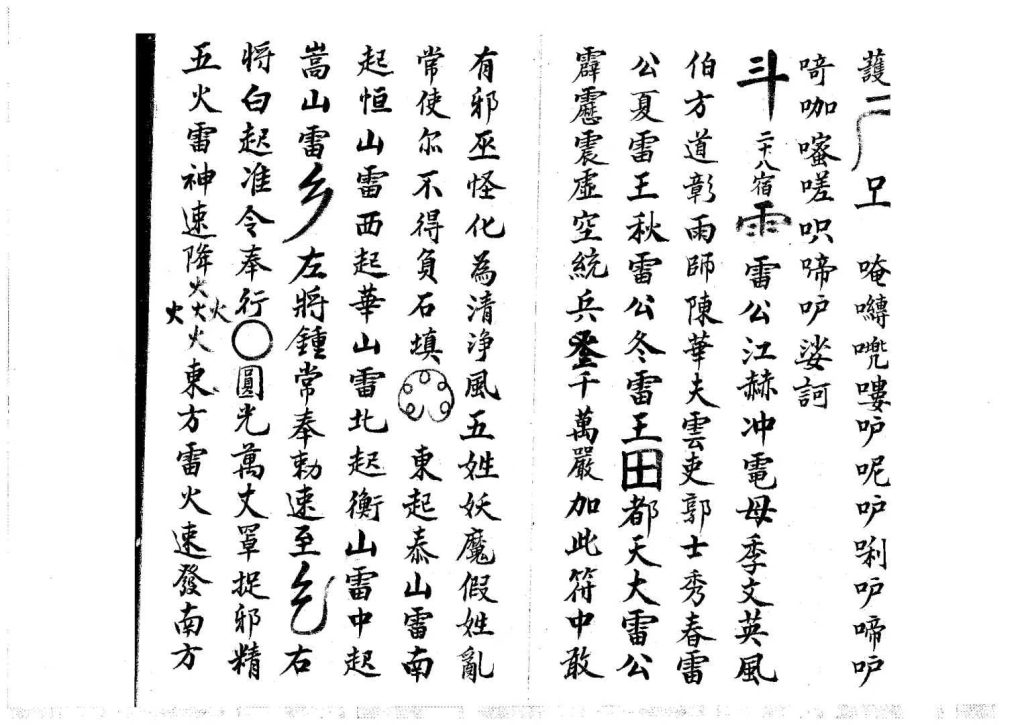 護二𠂆㔾 唵囀吮嘍吣呢吣唎吣啼吣
㗁咖嚒嗟呮啼吣娑訶
斗二十八宿雨雷公江赫冲電母季文英風
伯方道彰雨師陳華夫雲吏郭士秀春雷
公夏雷王秋雷公冬雷王田都天大雷公
霹靂震虛空統兵千萬嚴加此符中敢
有邪巫怪化為清淨風五姓妖魔假姓亂
常使尔不得負石填 東起泰山雷南
起恒山雷西起華山雷北起衡山雷中起
嵩山雷乡左將鍾常奉勅速至乞右
將白起准令奉行〇圓光萬丈罩捉邪精
五火雷神速降火火火火火東方雷火速發南方